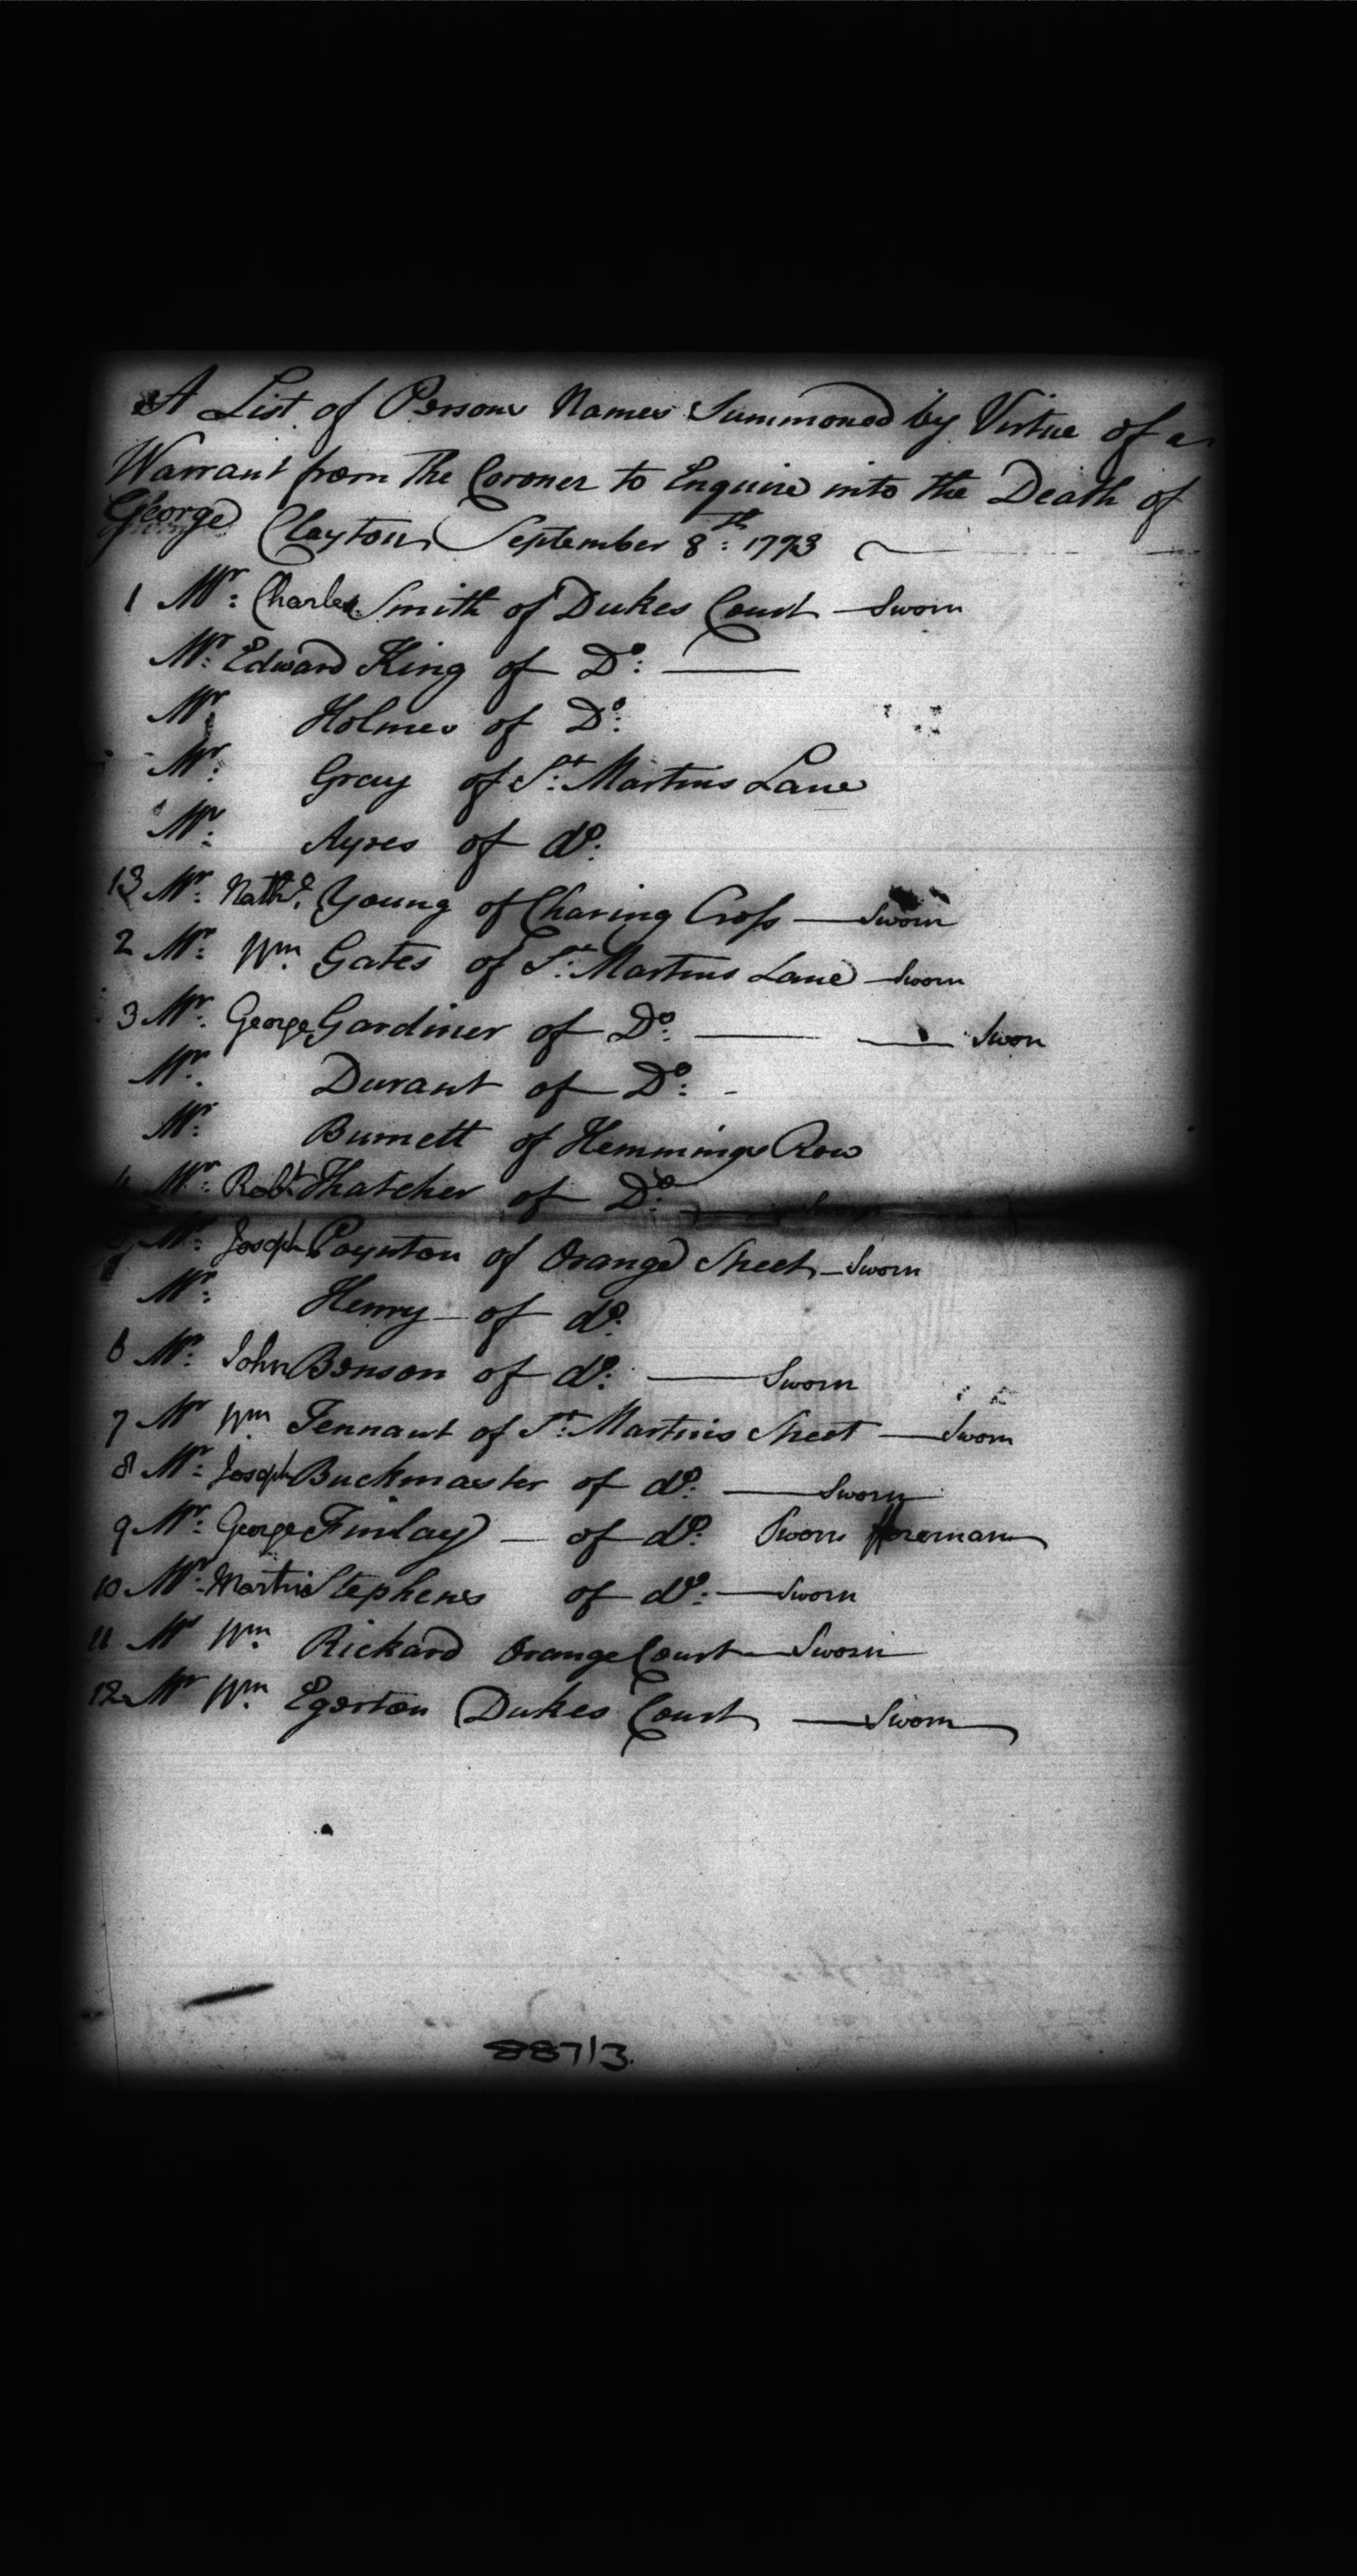 A List of Persons Names Summoned by Virtue of a
Warrant from The Coroner to Enquire into the Death of
George Clayton September 8th: 1793
1 Mr: Charles Smith of Dukes Court — Sworn
Mr: Edward King of Do: —
Mr: Holmes of Do:
Mr: Gray of St: Martins Lane
Mr: Ayres of do:
13 Mr: Nathl. Young of Charing Cross — Sworn
2 Mr: Wm. Gates of St: Martins Lane — Sworn
3 Mr: George Gardiner of Do: — — Sworn
Mr: Durant of Do: -
Mr: Burnett of Hemmings Row
4 Mr: Robt. Thatcher of Do: — Sworn
Mr: Joseph Poynton of Orange Street — Sworn
Mr: Henry of do:
6 Mr: John Benson of do: — Sworn
7 Mr Wm. Tennant of St: Martins Street — Sworn
8 Mr: Joseph Buckmaster of do: — Sworn
9 Mr: George Finlay — of do: Sworn fforeman
10 Mr: Martin Stephens of do: — Sworn
11 Mr Wm. Rickard Orange Court — Sworn
12 Mr Wm. Egerton Dukes Court — Sworn
887/3.